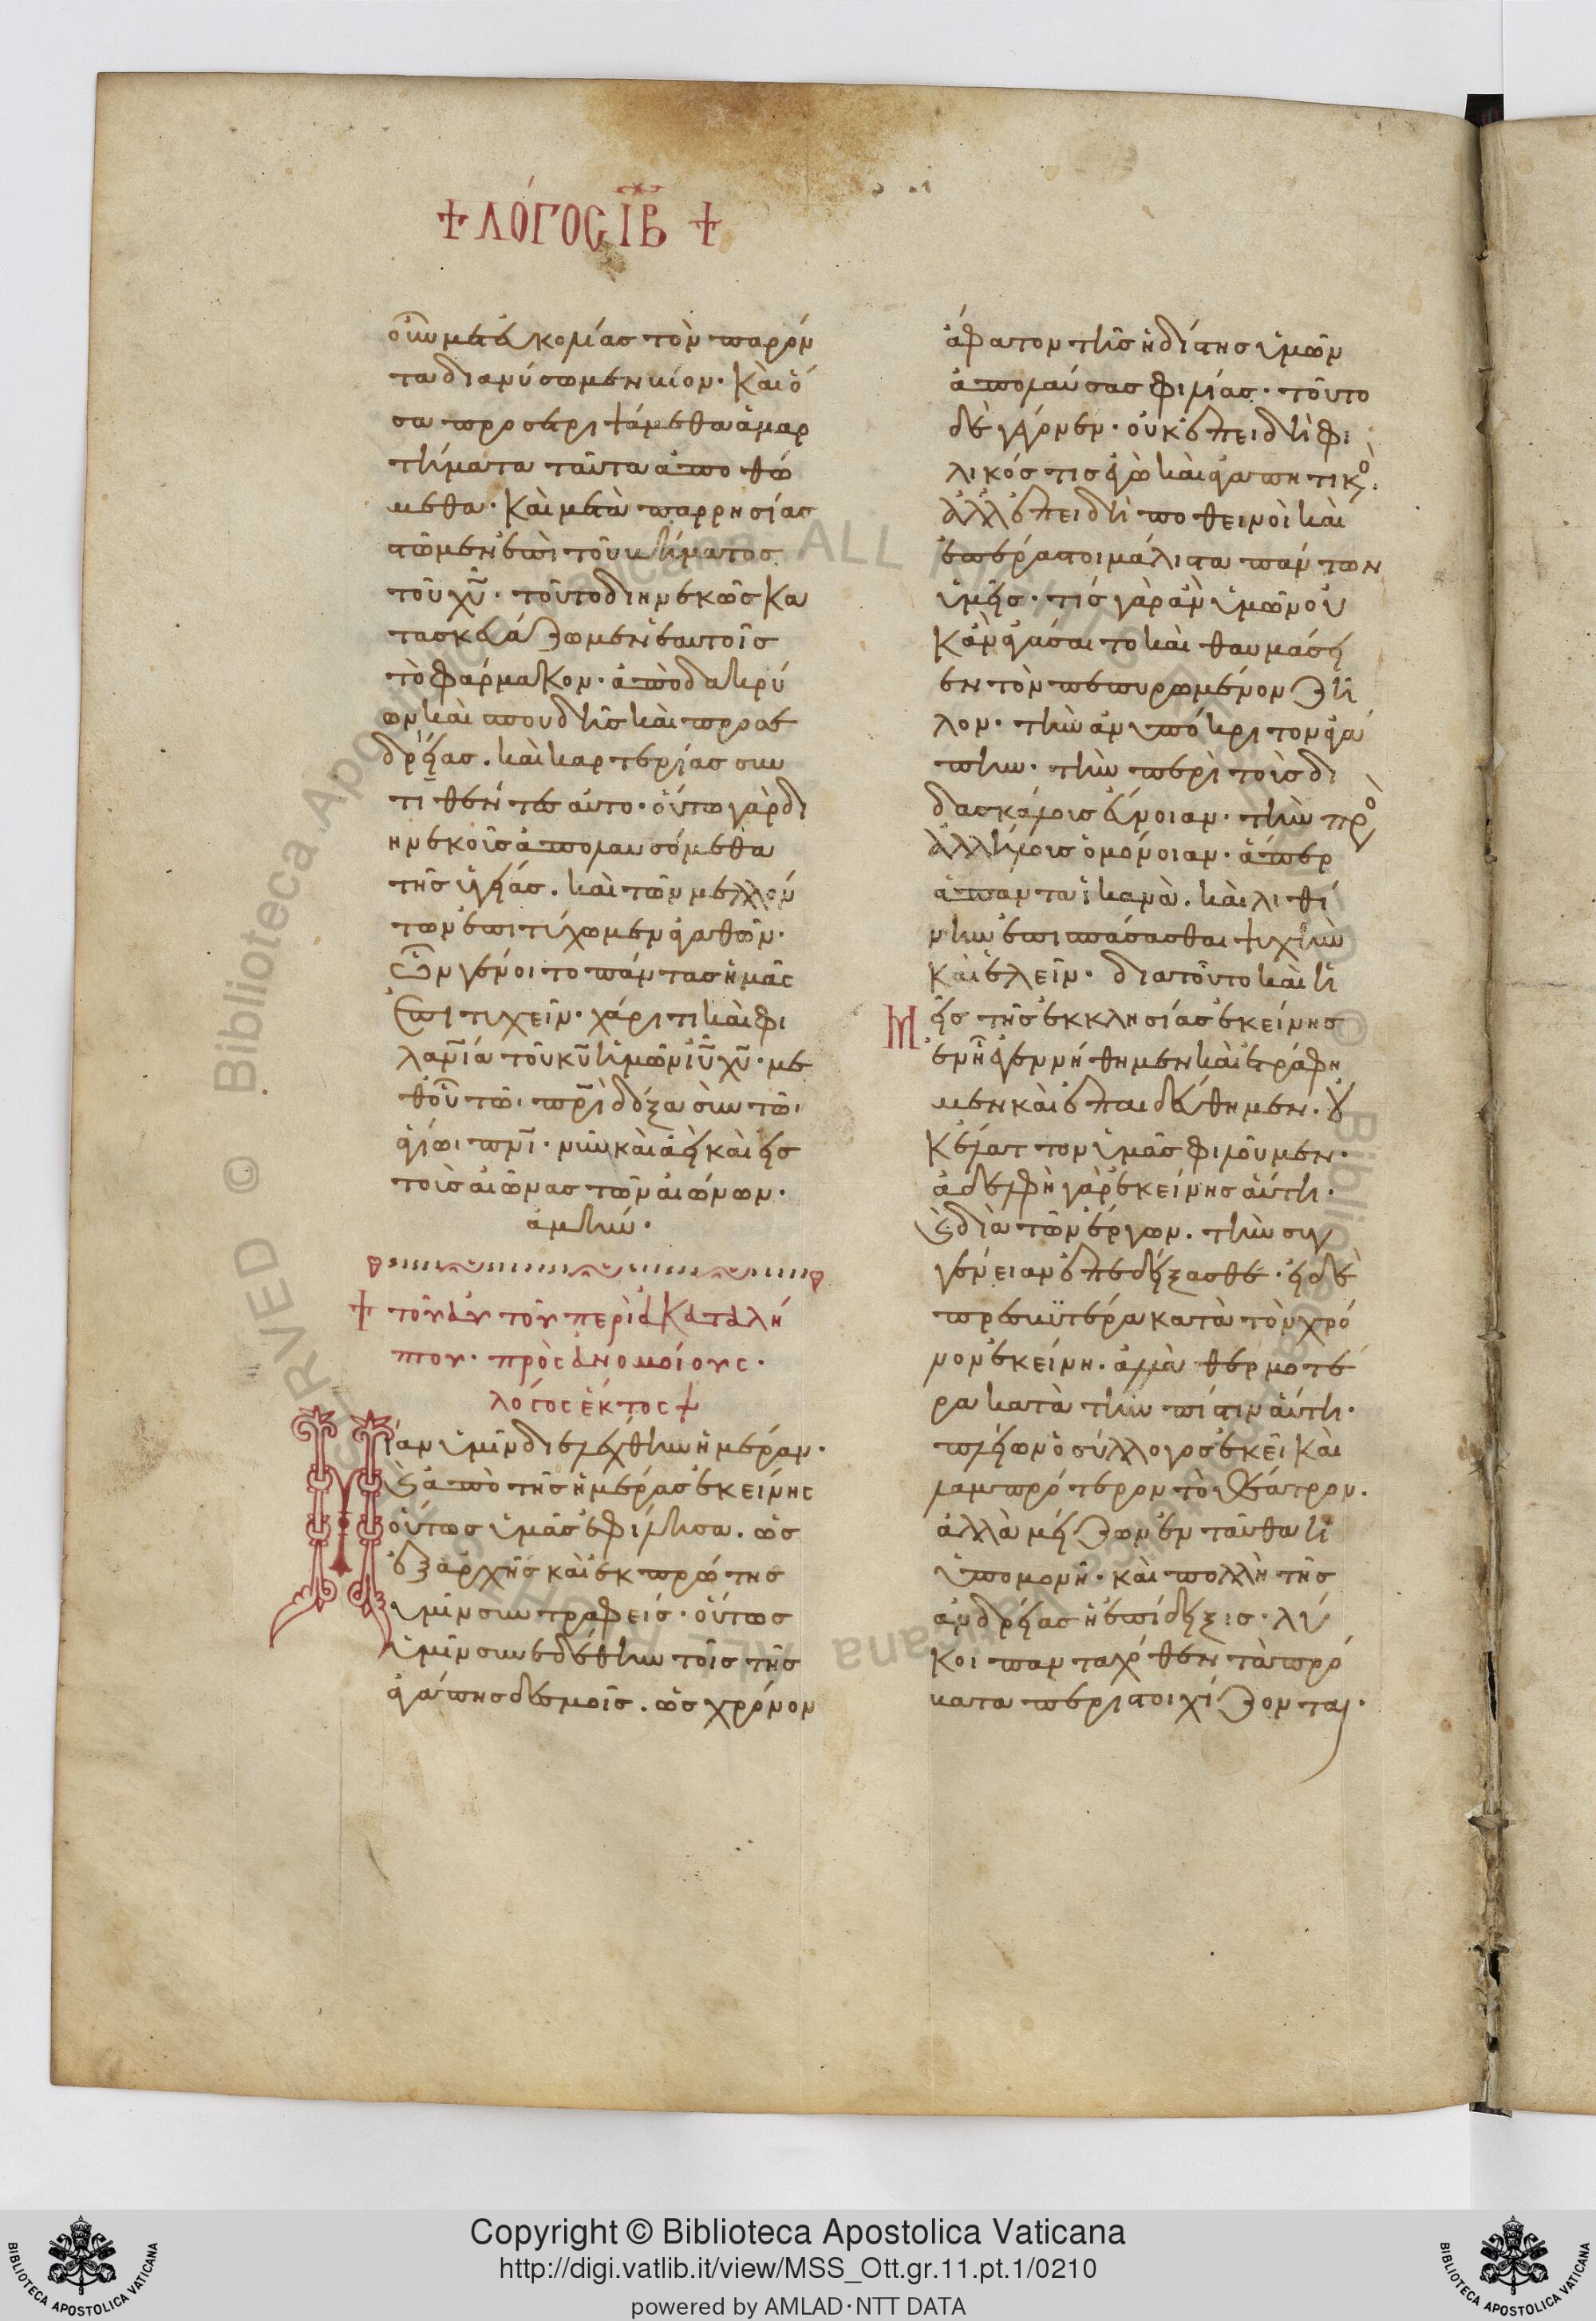 + ΛΌΓΟΣ ΙΒ +
οὖν μετ' εὐκολίας τὸν παρόν
τα διανύσωμεν βίον· καὶ ὅ
σα προσετριψάμεθα ἁμαρ
τήματα ταῦτα ἀποθώ
μεθα· καὶ μετὰ παρρησίας
στῶμεν ἐπὶ τοῦ βήματος
τοῦ χ̅υ̅· τοῦτο διηνεκῶς κα
τασκευάζωμεν ἑαυτοῖς
τὸ φάρμακον· ἀπὸ δακρύ
ων καὶ σπουδῆς καὶ προσε
δρείας. καὶ καρτερίας συν
τιθέντες αὐτο· οὕτω γὰρ δι
ηνεκοῖς ἀπολαυσόμεθα
τῆς ὑγείας. καὶ τῶν μελλόν
των ἐπιτύχωμεν ἀγαθῶν·
ὧν γένοιτο πάντας ἡμᾶς
ἐπιτυχεῖν· χάριτι καὶ φι
λανι̅α τοῦ κ̅υ̅ ἡμῶν ι̅υ̅ χ̅υ̅· με
θ' οὗ τῶι π̅ρ̅ι̅ δόξα σὺν τῶι
ἁγίωι π̅ν̅ι̅· νῦν καὶ ἀεὶ καὶ εἰς
τοὺς αἰῶνας τῶν αἰώνων·
ἀμήν·
+ τοῦ αὐτοῦ περὶ ἀκαταλή
πτου· πρὸς ἀνομοίους·
λόγος ἕκτος +
Μίαν ὑμῖν διελέχθην ἡμέραν·
καὶ ἀπὸ τῆς ἡμέρας ἐκείνης
οὕτως ὑμᾶς ἐφίλησα. ὡς
ἐξ ἀρχῆς καὶ ἐκ πρώτης
ὑμῖν συντραφείς· οὕτως
ὑμῖν συνεδέθην τοῖς τῆς
ἀγάπης δεσμοῖς. ὡς χρόνον
ἄφατον τῆς ἡδίστης ὑμῶν
ἀπολαύσας φιλίας· τοῦτο
δὲ γέγονεν· οὐκ ἐπειδὴ φι
λικός τις ἐγὼ καὶ ἀγαπητικό(ς)·
ἀλλ' ἐπειδὴ ποθεινοὶ καὶ
ἐπέραστοι μάλιστα πάντων
ὑμεῖς· τίς γὰρ ἂν ὑμῶν οὐ
κ ἂν ἀγάσαιτο καὶ θαυμάσει
εν τὸν πεπυρωμένον ζῆ
λον· τὴν ἀνυπόκριτον ἀγά
πην· τὴν περὶ τοὺς δι
δασκάλους εὔνοιαν· τὴν πρὸ(ς)
ἀλλήλους ὁμόνοιαν· ἅπερ
ἅπαντα ἱκανὰ. καὶ λιθί
νην ἐπισπάσασθαι ψυχὴν
καὶ ἑλεῖν· διατοῦτο καὶ ἡ
μεῖς τῆς ἐκκλησίας ἐκείνης
ἐν ᾗ ἐγεννήθημεν καὶ ἐτράφη
μεν καὶ ἐπαιδεύθημεν. οὐ
κ ἔλαττον ὑμᾶς φιλοῦμεν·
ἀδελφὴ γὰρ ἐκείνης αὕτη·
καὶ διὰ τῶν ἔργων. τὴν συγ
γένειαν ἐπεδείξασθε· εἰ δὲ
πρεσβϋτέρα κατὰ τὸν χρό
νον ἐκείνη. ἀλλὰ θερμοτέ
ρα κατὰ τὴν πίστιν αὕτη·
πλείων ὁ σύλλογος ἐκεῖ καὶ
λαμπρότερον τὸ θέατρον.
ἀλλὰ μείζων ἐνταῦθα ἡ
ὑπομονὴ· καὶ πολλὴ τῆς
ἀνδρείας ἡ ἐπίδειξις· λύ
κοι πανταχόθεν τὰ πρό
βατα περιστοιχίζονται·
Copyright © Biblioteca Apostolica Vaticana
http://digi.vatlib.it/view/MSS_Ott.gr.11.pt.1/0210
powered by AMLAD·NTT DATA